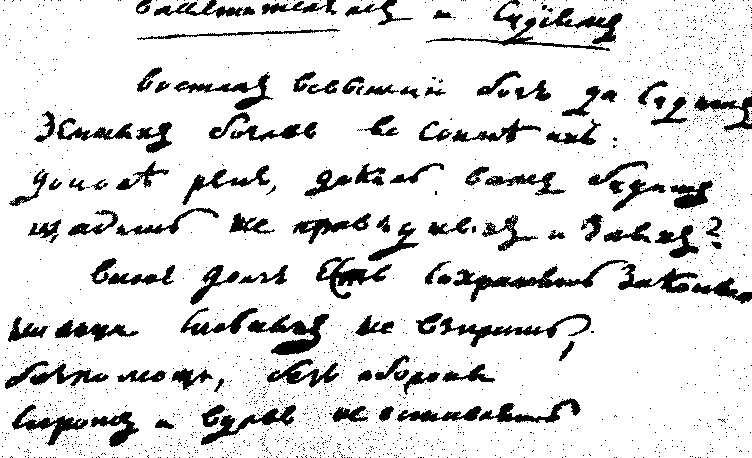 властителямъ и Судіямъ
восталъ всевышній богъ да Судитъ
Земныхъ боговъ во Сонмѣ ихъ:
доколѣ рекъ, доколь вамъ будетъ
щадить не праведныхъ и злыхъ?
вашъ долгъ Есть Сохранять Законы
на лица Сильныхъ не взирать,
безъ помощи, безъ обороны
Сиротъ и вдовъ не оставлять